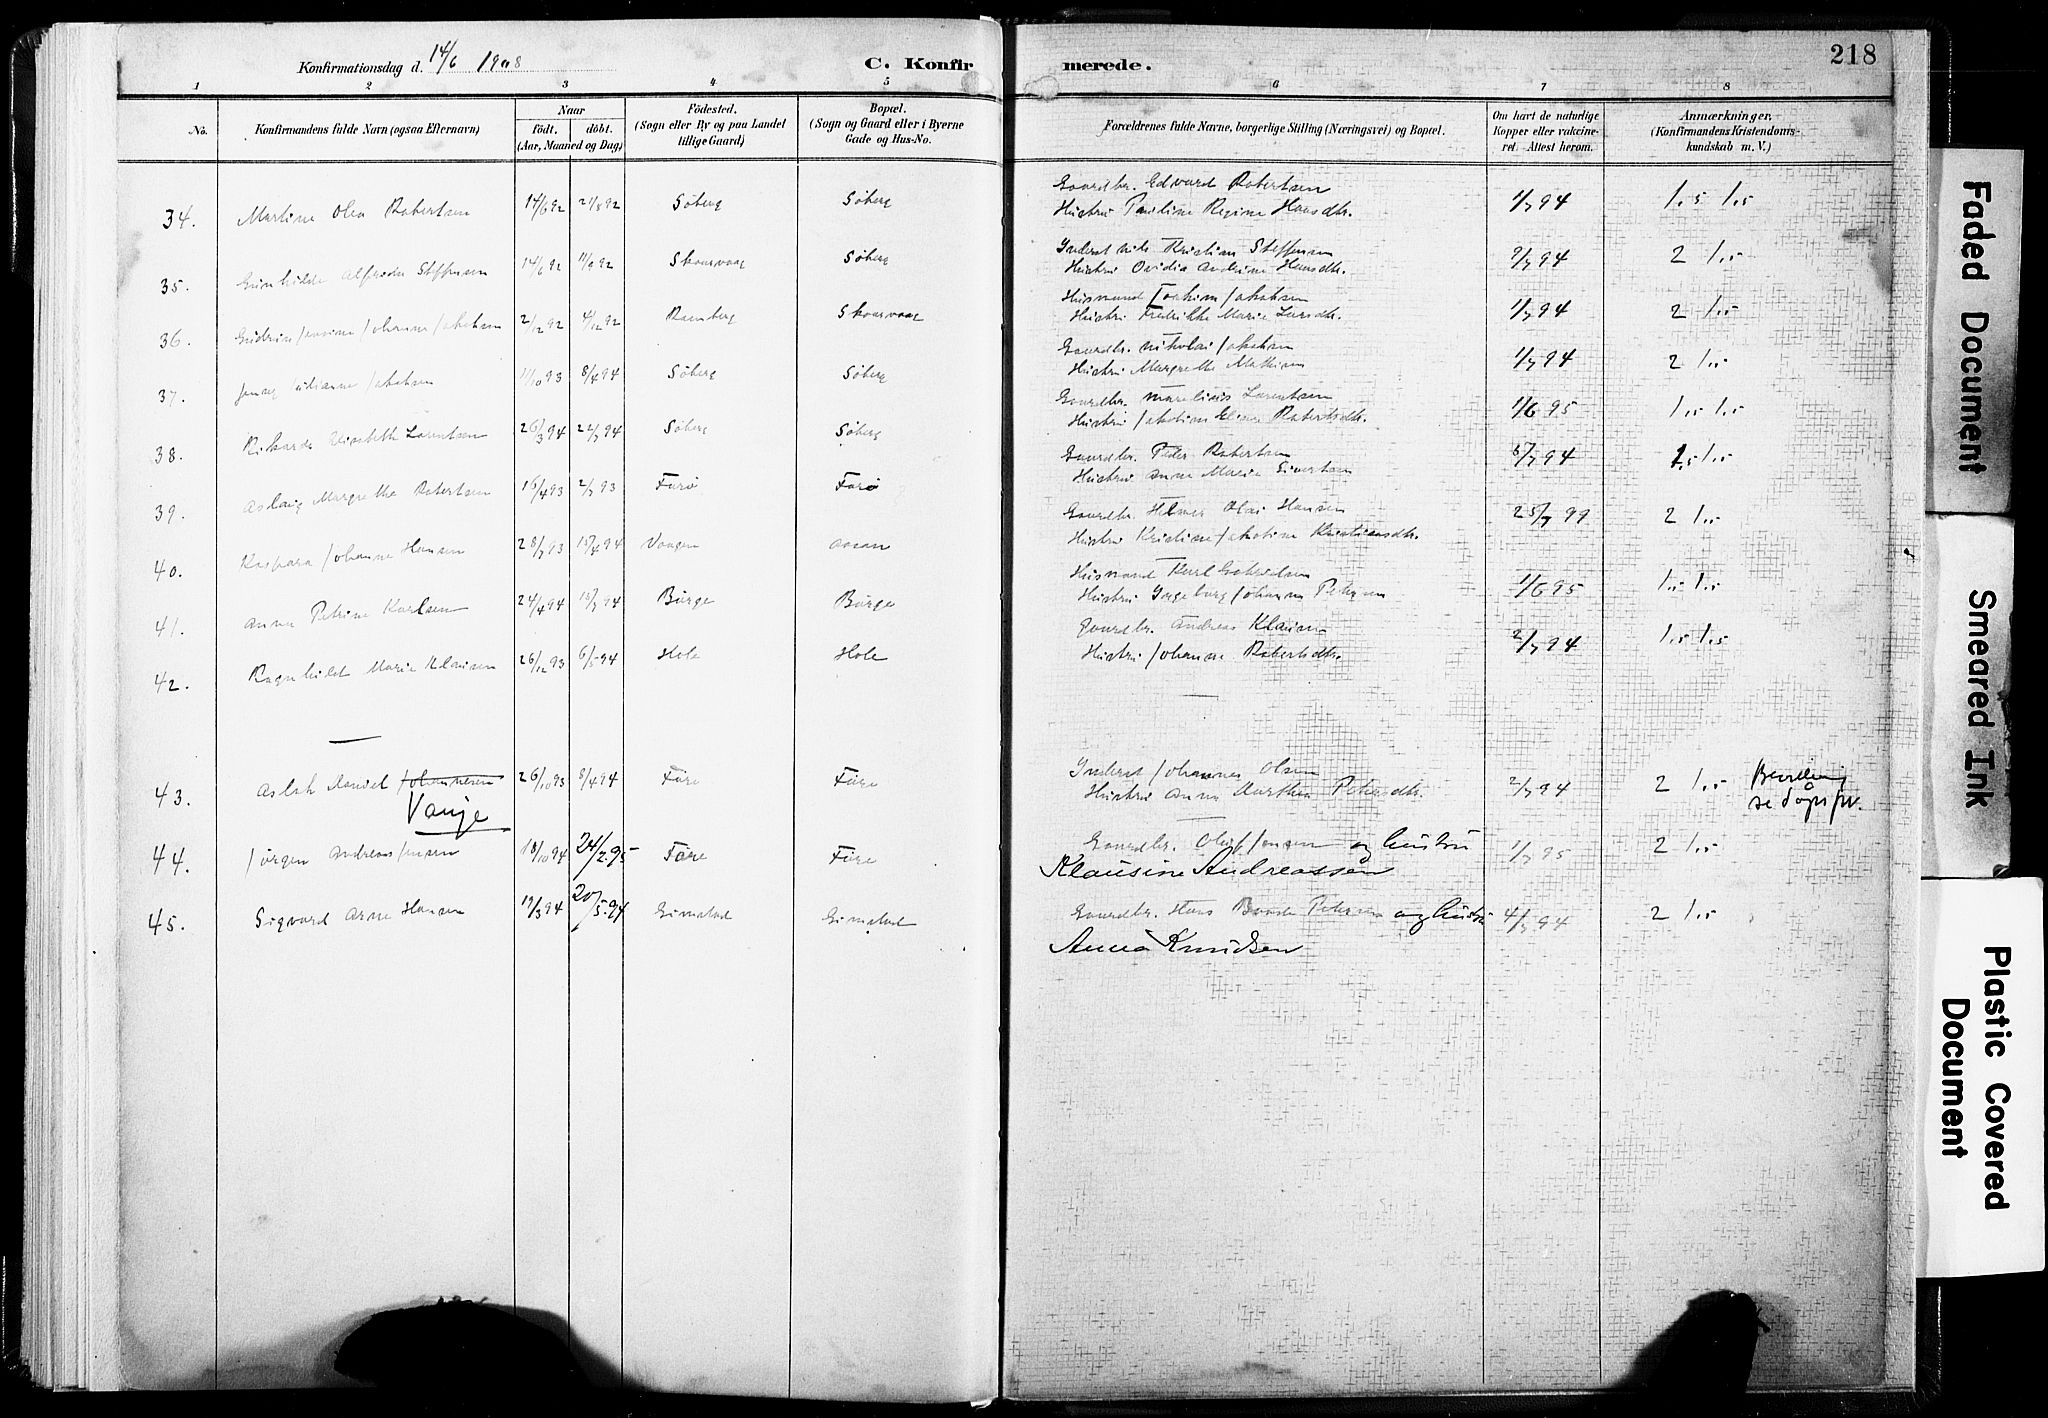 Konfirmationsdag d. 14/6 1908
C. Konfirmerede.
218
1 2 3 4 5 6 7 8
No.
Konfirmandens fulde Navn (ogsaa Efternavn)
Naar
födt. döbt.
(Aar, Maaned og Dag)
Födested.
(Sogn eller By og paa Landet
tillige Gaard)
Bopæl.
(Sogn og Gaard eller i Byerne
Gade og Hus-No.
Forældrenes fulde Navne, borgerlige Stilling (Næringsvei) og Bopæl.
Om havt de naturlige
Kopper eller vakcine-
ret. Attest herom.
Anmærkninger.
(Konfirmandens Kristendoms-
kundskab m. V.)
34. Martine Olea Robertsen 14/6 92 21/8 92 Söberg Söberg
Gaardbr. Edvard Robertsen
Hustru Pauline Regine Hansdtr. 1/7 94 1,5 1,5
35. Gunhilde Alfrida Steffensen 14/6 92 11/9 92 Skaarvaag Söberg
Inderst Nils Kristian Steffensen
Hustru Ovidia Andrine Hansdtr. 2/7 94 2 1,5
36. Gudrun Jensine Johanne Jakobsen 2/12 92 4/12 92 Ramberg Skaarvaag
Husmand Joakim Jakobsen
Hustru Fredrikke Marie Larsdtr. 1/7 94 2 1,5
37. Jenny Julianne Jakobsen 11/10 93 8/4 94 Söberg Söberg
Gaardbr. Nikolai Jakobsen
Hustru Margrethe Mathisen 1/7 94 2 1,5
38. Rikarda Elisabeth Lorentsen 26/3 94 22/7 94 Söberg Söberg
Gaardbr. Marelius Lorentsen
Hustru Jakobine Elene Robertsdtr. 1/6 95 1,5 1,5
39. Aslaug Margrethe Robertsen 16/4 93 2/7 93 Farö Farö
Gaardbr. Peder Robertsen
Hustru Anne Marie Sivertsen 5/7 94 1,5 1,5
40. Kaspara Johanne Hansen 28/7 93 15/4 94 Vaagen Aasan
Gaardbr. Helmer Olai Hansen
Hustru Kristine Jakobine Kristiansdtr. 25/7 99 2 1,5
41. Anna Petrine Karlsen 24/4 94 15/7 94 Börge Börge
Husmand Karl Gabrielsen
Hustru Ingeborg Johanna Petersen 1/6 95 1,5 1,5
42. Ragnhild Marie Klausen 26/12 93 6/5 94 Hole Hole
Gaardbr. Andreas Klausen
Hustru Johanne Robertsdtr. 2/7 94 1,5 1,5
43. Aslak Daniel Johannesen 26/10 93 8/4 94 Före Före
Vanje
Inderst Johannes Olsen
Hustru Anna Dorthea Petersdtr. 2/7 94 2 1,5 Bevilling
se dåpspr.
44. Jörgen Andreas Jensen 18/10 94 24/2 95 Före Före
Gaardbr. Oluf Jensen og hustru
Klausine Andreassen 1/7 95 2 1,5
45. Sigvard Arne Hansen 19/3 94 20/5 94 Gimstad Gimstad
Gaardbr. Hans Peter Petersen og hustru
Anna Knudsen 4/7 94 2 1,5
Faded Document
Smeared Ink
Plastic Covered
Document